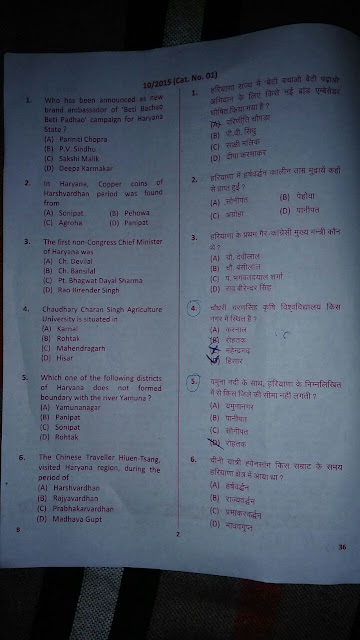 10/2015 (Cat. No. 01)
1. Who has been announced as new
brand embassador of 'Beti Bachao
Beti Padhao' campaign for Haryana
State ?
(A) Pariniti Chopra
(B) P.V. Sindhu
(C) Sakshi Malik
(D) Deepa Karmakar
2. In Haryana, Copper coins of
Harshvardhan period was found
from
(A) Sonipat (B) Pehowa
(C) Agroha (D) Panipat
3. The first non-Congress Chief Minister
of Haryana was
(A) Ch. Devilal
(B) Ch. Bansilal
(C) Pt. Bhagwat Dayal Sharma
(D) Rao Birender Singh
4. Chaudhary Charan Singh Agriculture
University is situated in
(A) Karnal
(B) Rohtak
(C) Mahendragarh
(D) Hisar
5. Which one of the following districts
of Haryana does not formed
boundary with the river Yamuna ?
(A) Yamunanagar
(B) Panipat
(C) Sonipat
(D) Rohtak
6. The Chinese Traveller Hiuen-Tsang,
visited Haryana region, during the
period of
(A) Harshvardhan
(B) Rajyavardhan
(C) Prabhakarvardhan
(D) Madhava Gupt
1. हरियाणा राज्य में 'बेटी बचाओ बेटी पढ़ाओ'
अभियान के लिए किसे नई ब्रांड एम्बेसेडर
घोषित किया गया है ?
(A) परिणीति चोपड़ा
(B) पी.वी. सिंधु
(C) साक्षी मलिक
(D) दीपा करमाकर
2. हरियाणा में हर्षवर्द्धन कालीन ताम्र मुद्रायें कहाँ
से प्राप्त हुई ?
(A) सोनीपत (B) पेहोवा
(C) अग्रोहा (D) पानीपत
3. हरियाणा के प्रथम गैर-कांग्रेसी मुख्य मन्त्री कौन
थे ?
(A) चौ. देवीलाल
(B) चौ. बंसीलाल
(C) प. भगवतदयाल शर्मा
(D) राव बीरेन्दर सिंह
4. चौधरी चरणसिंह कृषि विश्वविद्यालय किस
नगर में स्थित है ?
(A) करनाल
(B) रोहतक
महेन्द्रगढ़
हिसार
5. यमुना नदी के साथ, हरियाणा के निम्नलिखित
में से किस जिले की सीमा नहीं लगती ?
(A) यमुनानगर
(B) पानीपत
(C) सोनीपत
(D) रोहतक
6. चीनी यात्री ह्वेनसांग किस सम्राट के समय
हरियाणा क्षेत्र में आया था ?
(A) हर्षवर्द्धन
(B) राज्यवर्द्धन
(C) प्रभाकरवर्द्धन
(D) माधवगुप्त
B
2
36